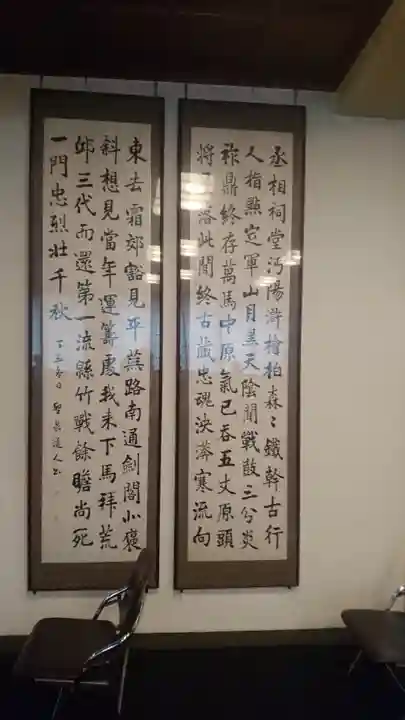 丞相祠堂沔陽滸檜柏森〻鐵幹古行
人指點定軍山月黑天陰聞戰鼓三分炎
祚鼎終存萬馬中原氣已吞五丈原頭
將星落此間終古葬忠魂泱漭寒流向
東去霜郊豁見平蕪路南通劍閣北褒
斜想見當年運籌處我来下馬拜荒
邱三代而還第一流緜竹戰餘瞻尚死
一門忠烈壯千秋